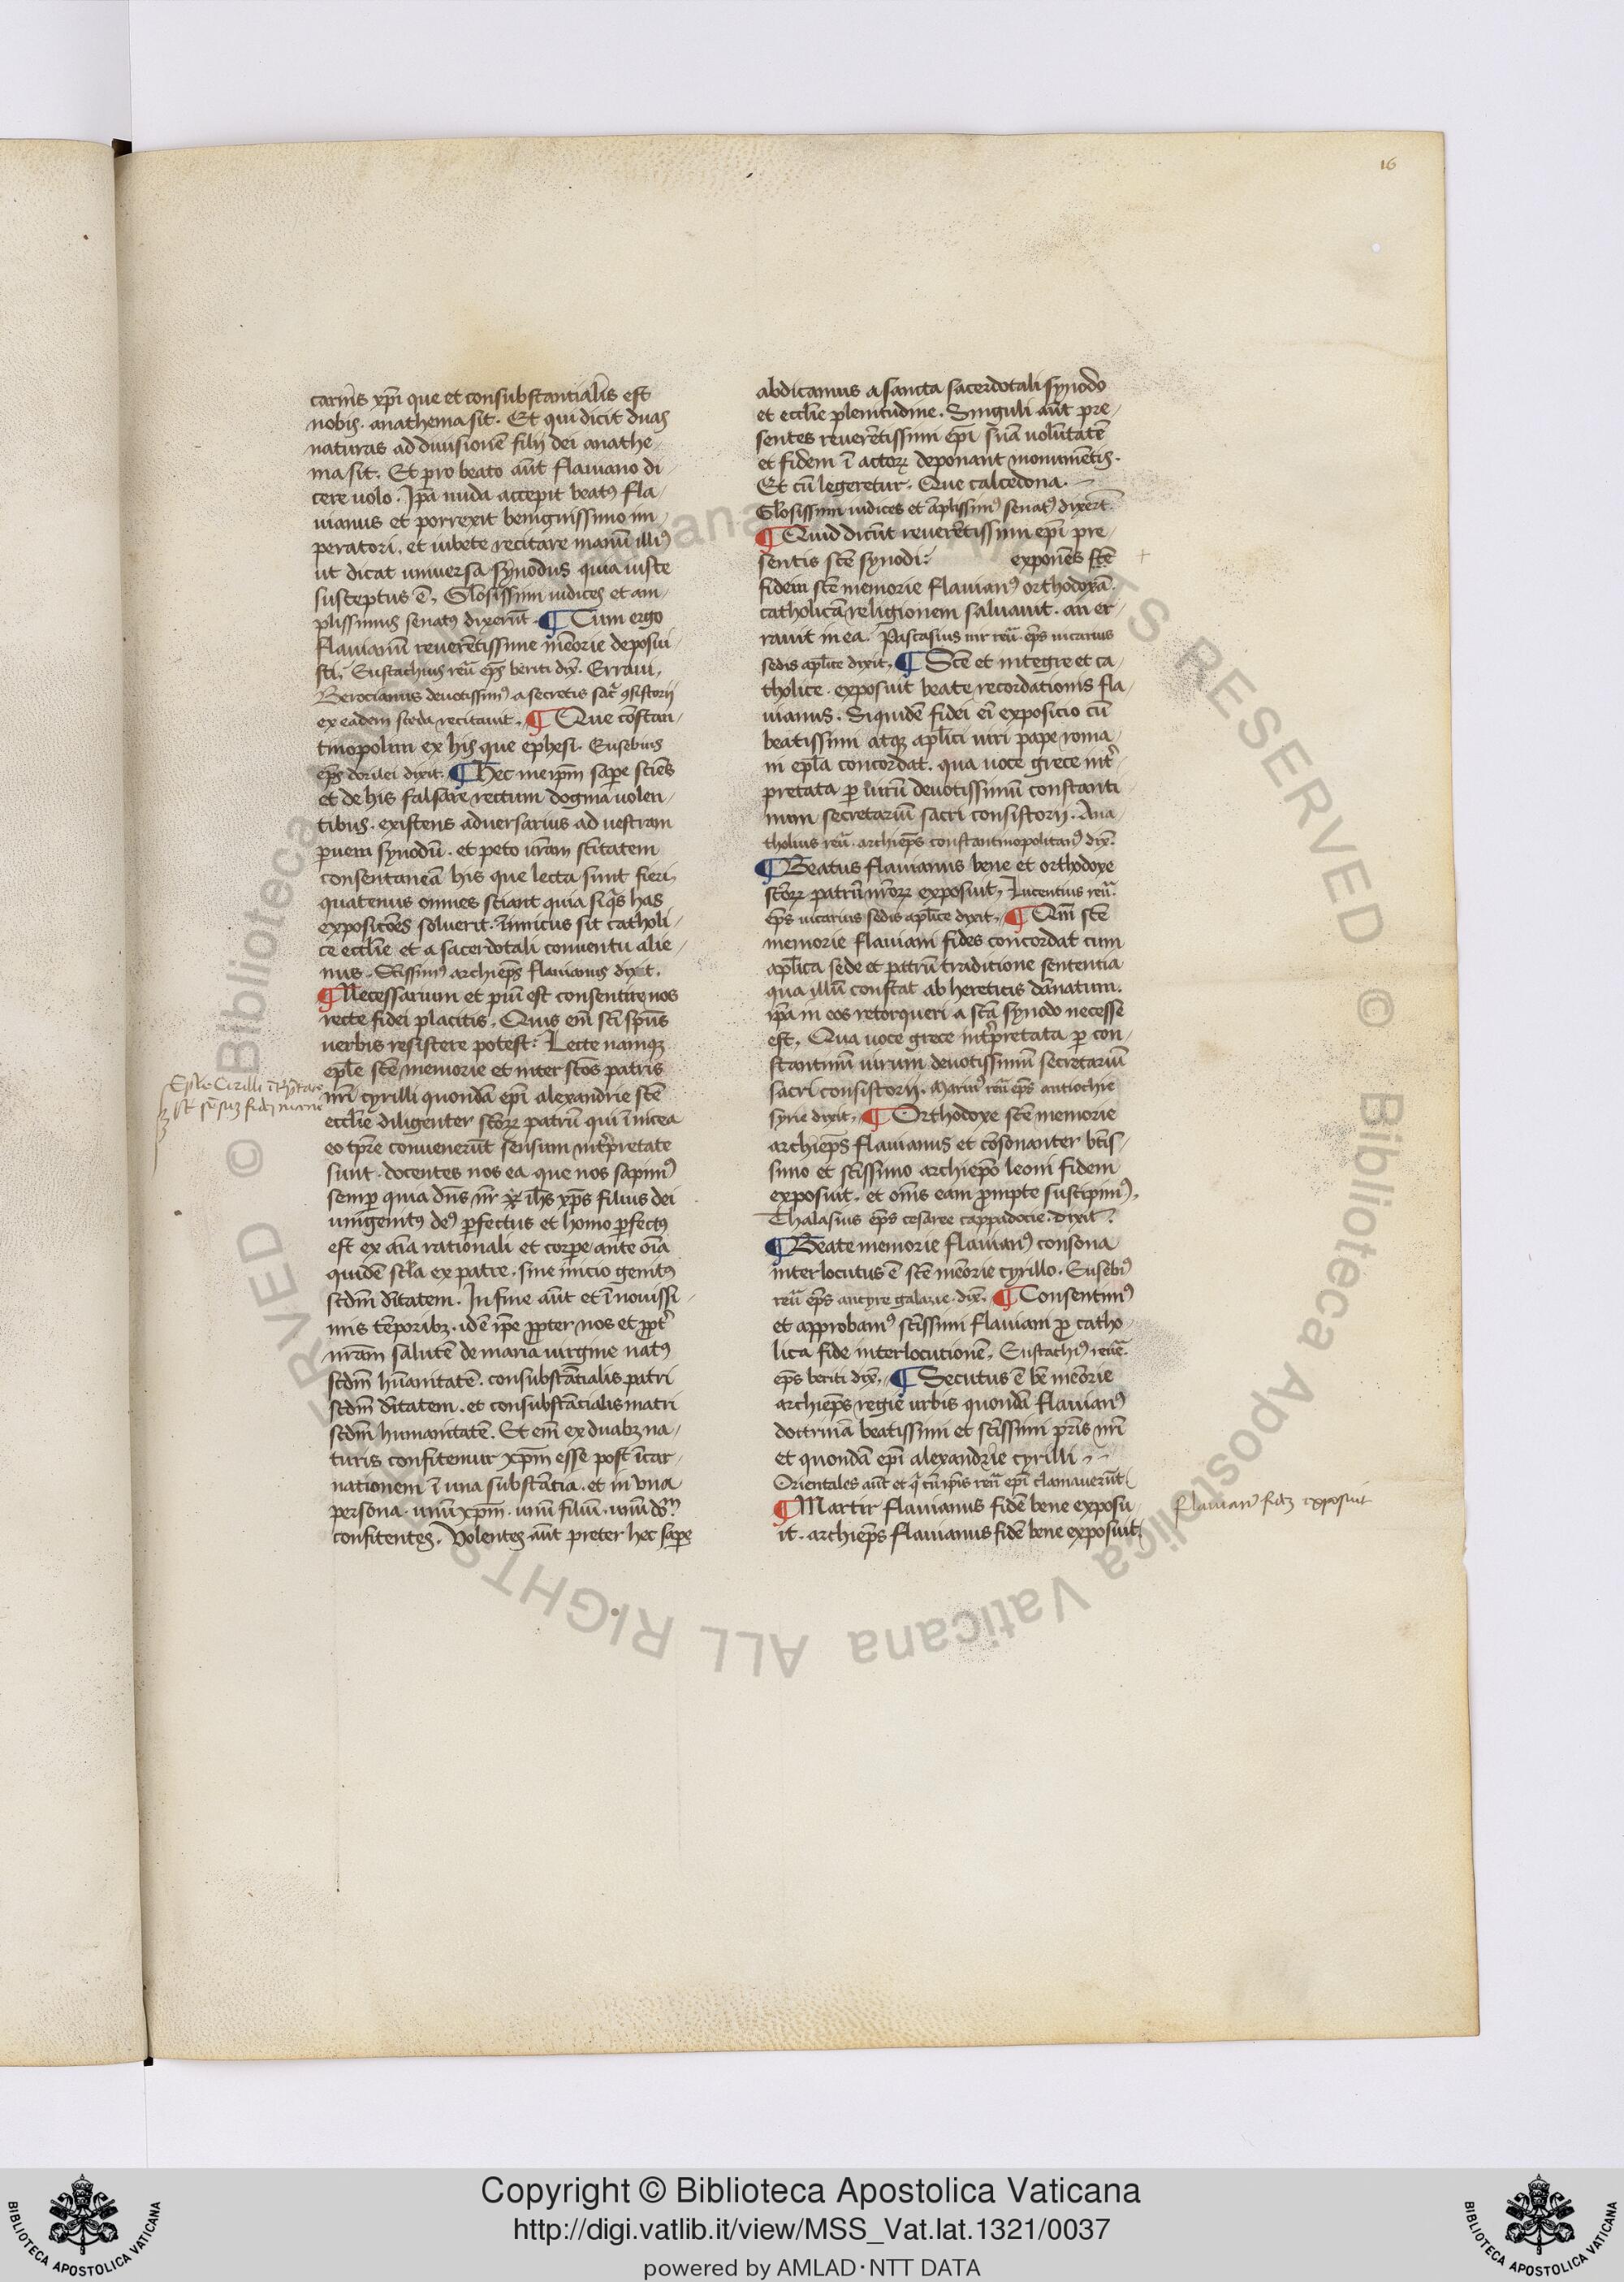 16
carnis xp̄i que et consubstantialis est
nobis. anathema sit. Et qui dicit duas
naturas ad diuisionē filij dei anathe-
ma sit. Et pro beato aūt flauiano di-
cere uolo. Ip̄a nuda accepit beatꝰ fla-
uianus et porrexit benignissimo im-
peratori. et iubete recitare manū illiꝰ
ut dicat uniuersa synodus quia iuste
susceptus ē. Gl̄osissimi iudices et am-
plissimus senatꝰ dixerūt. ¶ Cum ergo
flauianū reuerētissime mēorie deposui-
sti. Eustachius reū ep̄s beriti dix̄. Erraui.
Berocianus deuotissimꝰ a secretis sac̄ ꝯsistorij
ex eadem sceda recitauit. ¶ Que cōstan-
tinopolim ex his que ephesi. Eusebius
ep̄s dorilei dixit. ¶ Hec meip̄m sape sciēs
et de his falsare rectum dogma uolen-
tibus. existens aduersarius ad uestram
ꝑueni synodū. et peto ur̄am sc̄itatem
consentaneā his que lecta sunt fieri.
quatenus omnes sciant quia siq̄s has
expositōes soluerit. inimicus sit catholi-
ce eccl̄ie et a sacerdotali conuentu alie-
nus. Sc̄issimꝰ archiep̄s flauianus dixit.
¶ Necessarium et piū est consentire nos
recte fidei placitis. Quis em̄ sc̄i sp̄us
uerbis resistere potest: Lecte namqꝫ
ep̄le sc̄e memorie et inter sc̄os patris
nr̄i cyrilli quondā ep̄i alexandrie sc̄e
eccl̄ie diligenter sc̄oꝝ patrū qui ī nicea
eo tp̄re conuenerūt sensum int̄pretate
sunt. docentes nos ea que nos sapimꝰ
semꝑ quia dn̄s nr̄ ih̄s xp̄s filius dei
unigenitꝰ deꝰ ꝑfectus et homo ꝑfectꝰ
est ex aīa rationali et corꝑe ante oīa
quidē sc̄la ex patre. sine inicio genitꝰ
scdm̄ dītatem. In fine aūt et ī nouissi-
mis tēporibꝫ. idē ip̄e ꝓpter nos et ꝓpt̄
nr̄am salutē de maria uirgine natꝰ
scdm̄ hūanitatē. consubstātialis patri
scdm̄ dītatem. et consubstātialis matri
scdm̄ humanitatē. Et em̄ ex duabꝫ na-
turis confitemur xp̄m esse post īcar-
nationem ī una substātia. et in una
persona. unū xp̄m. unū filiū. unū dn̄m
confitentes. Uolentes aūt preter hec saꝑe
Ep̄le Cirilli īt̄p̄tate
sūt sēsuꝫ fidei nicene
abdicamus a sancta sacerdotali synodo
et eccl̄ie plenitudine. Singuli aūt pre-
sentes reuerētissimi ep̄i suā uolūtatē
et fidem ī actoꝝ deponant monumētis.
Et cū legeretur. Que calcedona.
Gl̄osissimi iudices et āplissimꝰ senatꝰ dixerūt.
¶ Quid dicūt reuerētissimi ep̄i pre-
sentis sc̄e synodi: exponēs sc̄e
fidem sc̄e memorie flauianꝰ orthodoxā.
catholicā religionem saluauit. an er-
rauit in ea. Pascasius uir reū. ep̄s uicarius
sedis apl̄ice dixit. ¶ Sc̄e et integre et ca-
tholice. exposuit beate recordationis fla-
uianus. Siquidē fidei eī exposicio cū
beatissimi atqꝫ apl̄ici uiri pape roma-
ni ep̄la concordat. qua uoce grece int̄-
pretata ꝑ uirū deuotissimū constanti-
num secretariū sacri consistorij. Ana-
tholius reū. archiep̄s constantinopolitanꝰ dix̄.
¶ Beatus flauianus bene et orthodoxe
sc̄oꝝ patrū nr̄oꝝ exposuit. Lucentius reū.
ep̄s uicarius sedis apl̄ice dixit. ¶ Qm̄ sc̄e
memorie flauiani fides concordat cum
apl̄ica sede et patrū traditione sententia
qua illū constat ab hereticis dānatum.
ip̄a in eos retorqueri a sc̄a synodo necesse
est. Qua uoce grece int̄pretata ꝑ con-
stantinū uirum deuotissimū secretariū
sacri consistorij. Marinꝰ reū ep̄s antiochie
syrie dixit. ¶ Orthodoxe sc̄e memorie
archiep̄s flauianus et cōsonanter bt̄is-
simo et sc̄issimo archiep̄o leoni fidem
exposuit. et om̄s eam ꝓmpte suscipimꝰ.
Thalasius ep̄s cesaree cappadocie. dixit.
¶ Beate memorie flauianꝰ consona
interlocutus ē sc̄e mēorie cyrillo. Eusebiꝰ
reū ep̄s ancyre galazie. dix̄. ¶ Consentimꝰ
et approbamꝰ sc̄issimi flauiani ꝓ catho-
lica fide interlocutionē. Eustachiꝰ reuē.
ep̄s beriti dix̄. ¶ Secutus ē bn̄ mēorie
archiep̄s regie urbis quondā flauianꝰ
doctrinā beatissimi et sc̄issimi pr̄is nr̄i
et quondā ep̄i alexandrie cyrilli
Orientales aūt et q̄ cū ip̄is reū ep̄i clamauerūt
¶ Martir flauianus fidē bene exposu-
it. archiep̄s flauianus fidē bene exposuit.
flauianꝰ fidē exposuit
© Biblioteca Apostolica Vaticana ALL RIGHTS RESERVED
Copyright © Biblioteca Apostolica Vaticana
http://digi.vatlib.it/view/MSS_Vat.lat.1321/0037
powered by AMLAD·NTT DATA
BIBLIOTECA APOSTOLICA VATICANA
BIBLIOTECA APOSTOLICA VATICANA